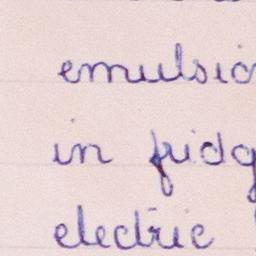 emulsio
in fridg
electric